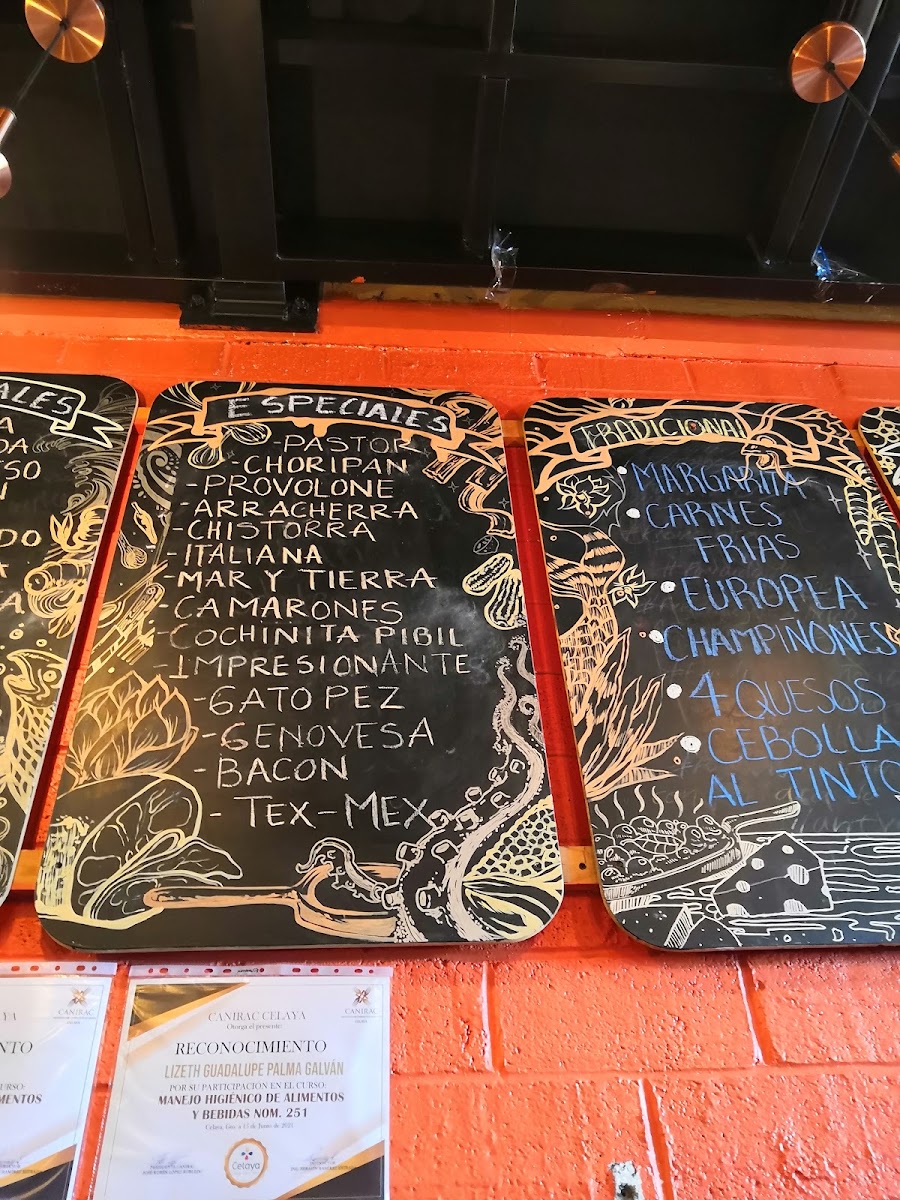 ALES
A
DA
SO
N
DO
A
A
ESPECIALES
-PASTOR
-CHORIPAN
-PROVOLONE
-ARRACHERRA
-CHISTORRA
-ITALIANA
-MAR Y TIERRA
-CAMARONES
-COCHINITA PIBIL
-IMPRESIONANTE
-GATO PEZ
-GENOVESA
-BACON
-TEX-MEX
TRADICIONAL
MARGARITA
CARNES
FRIAS
EUROPEA
CHAMPIÑONES
4 QUESOS
CEBOLLA
AL TINTO
YA
CANIRAC
NTO
CURSO:
MENTOS
CANIRAC CELAYA
Otorga el presente:
CANIRAC
RECONOCIMIENTO
LIZETH GUADALUPE PALMA GALVÁN
POR SU PARTICIPACIÓN EN EL CURSO:
MANEJO HIGIÉNICO DE ALIMENTOS
Y BEBIDAS NOM. 251
Celaya, Gto. a 15 de Junio de 2021
Celaya